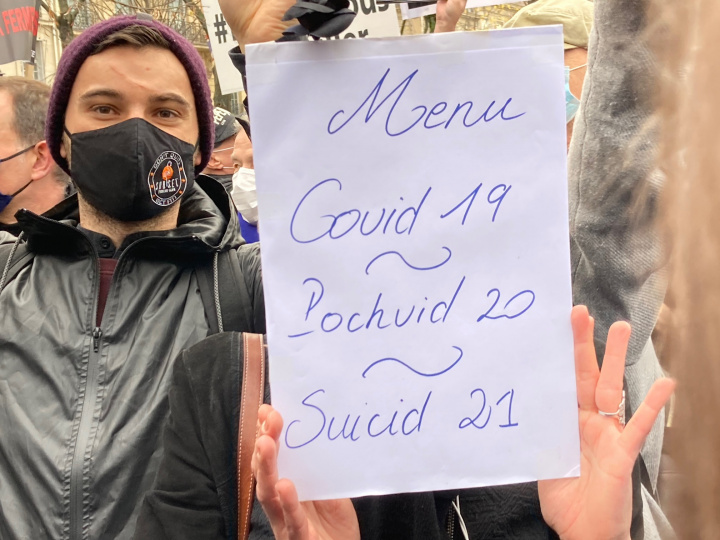 Menu
Covid 19
~
Pochvid 20
~
Suicid 21